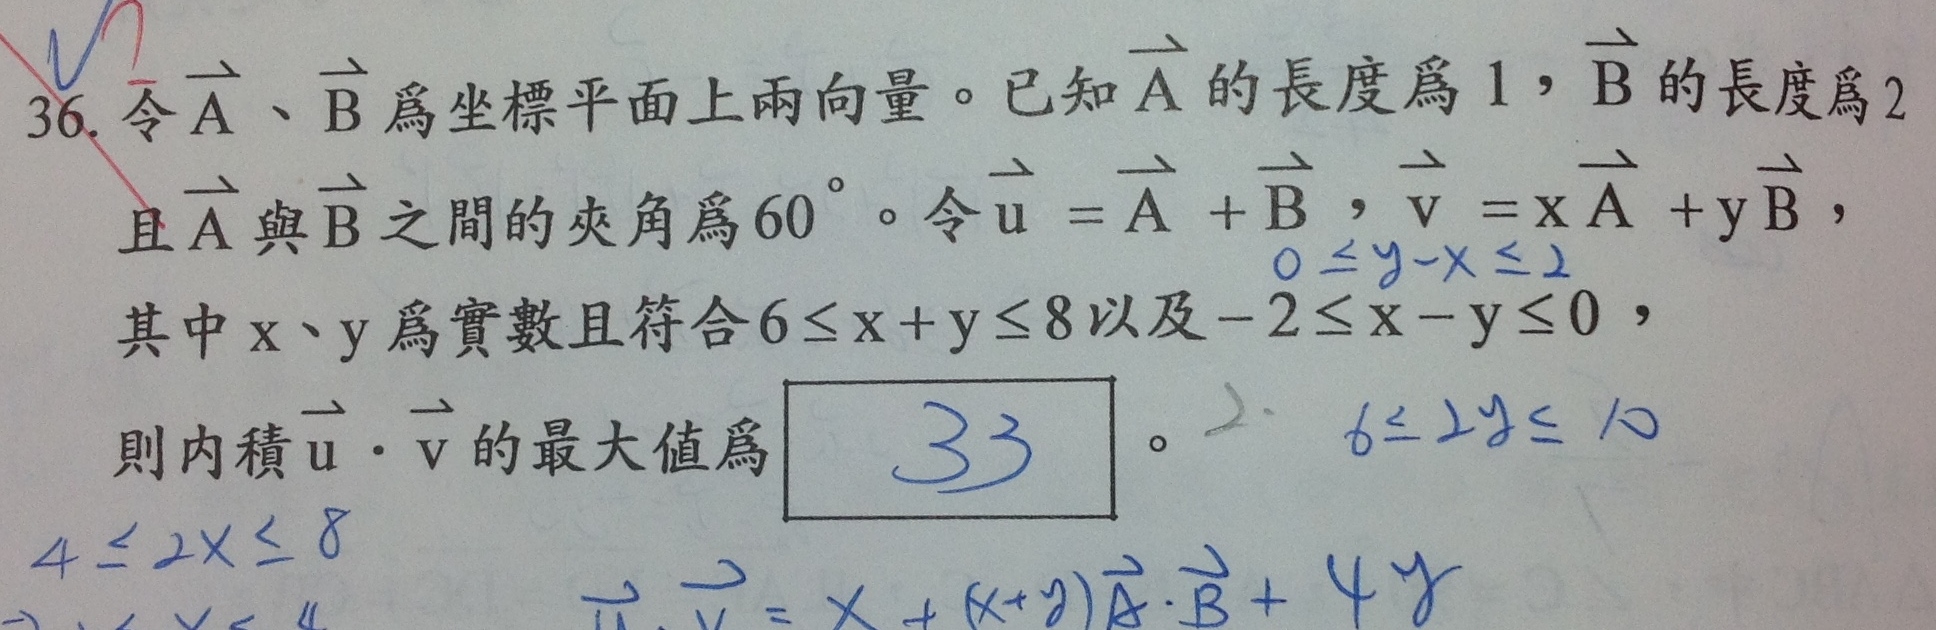 36. 令 A⃗、B⃗ 爲坐標平面上兩向量。已知 A⃗ 的長度爲 1，B⃗ 的長度爲 2
且 A⃗ 與 B⃗ 之間的夾角爲 60°。令 u⃗ = A⃗ + B⃗，v⃗ = x A⃗ + y B⃗，
0 ≤ y-x ≤ 2
其中 x、y 爲實數且符合 6 ≤ x + y ≤ 8 以及 -2 ≤ x - y ≤ 0，
則內積 u⃗ · v⃗ 的最大值爲 33 。 2. 6 ≤ 2y ≤ 10
4 ≤ 2x ≤ 8
u⃗ · v⃗ = x + (x+y) A⃗ · B⃗ + 4y